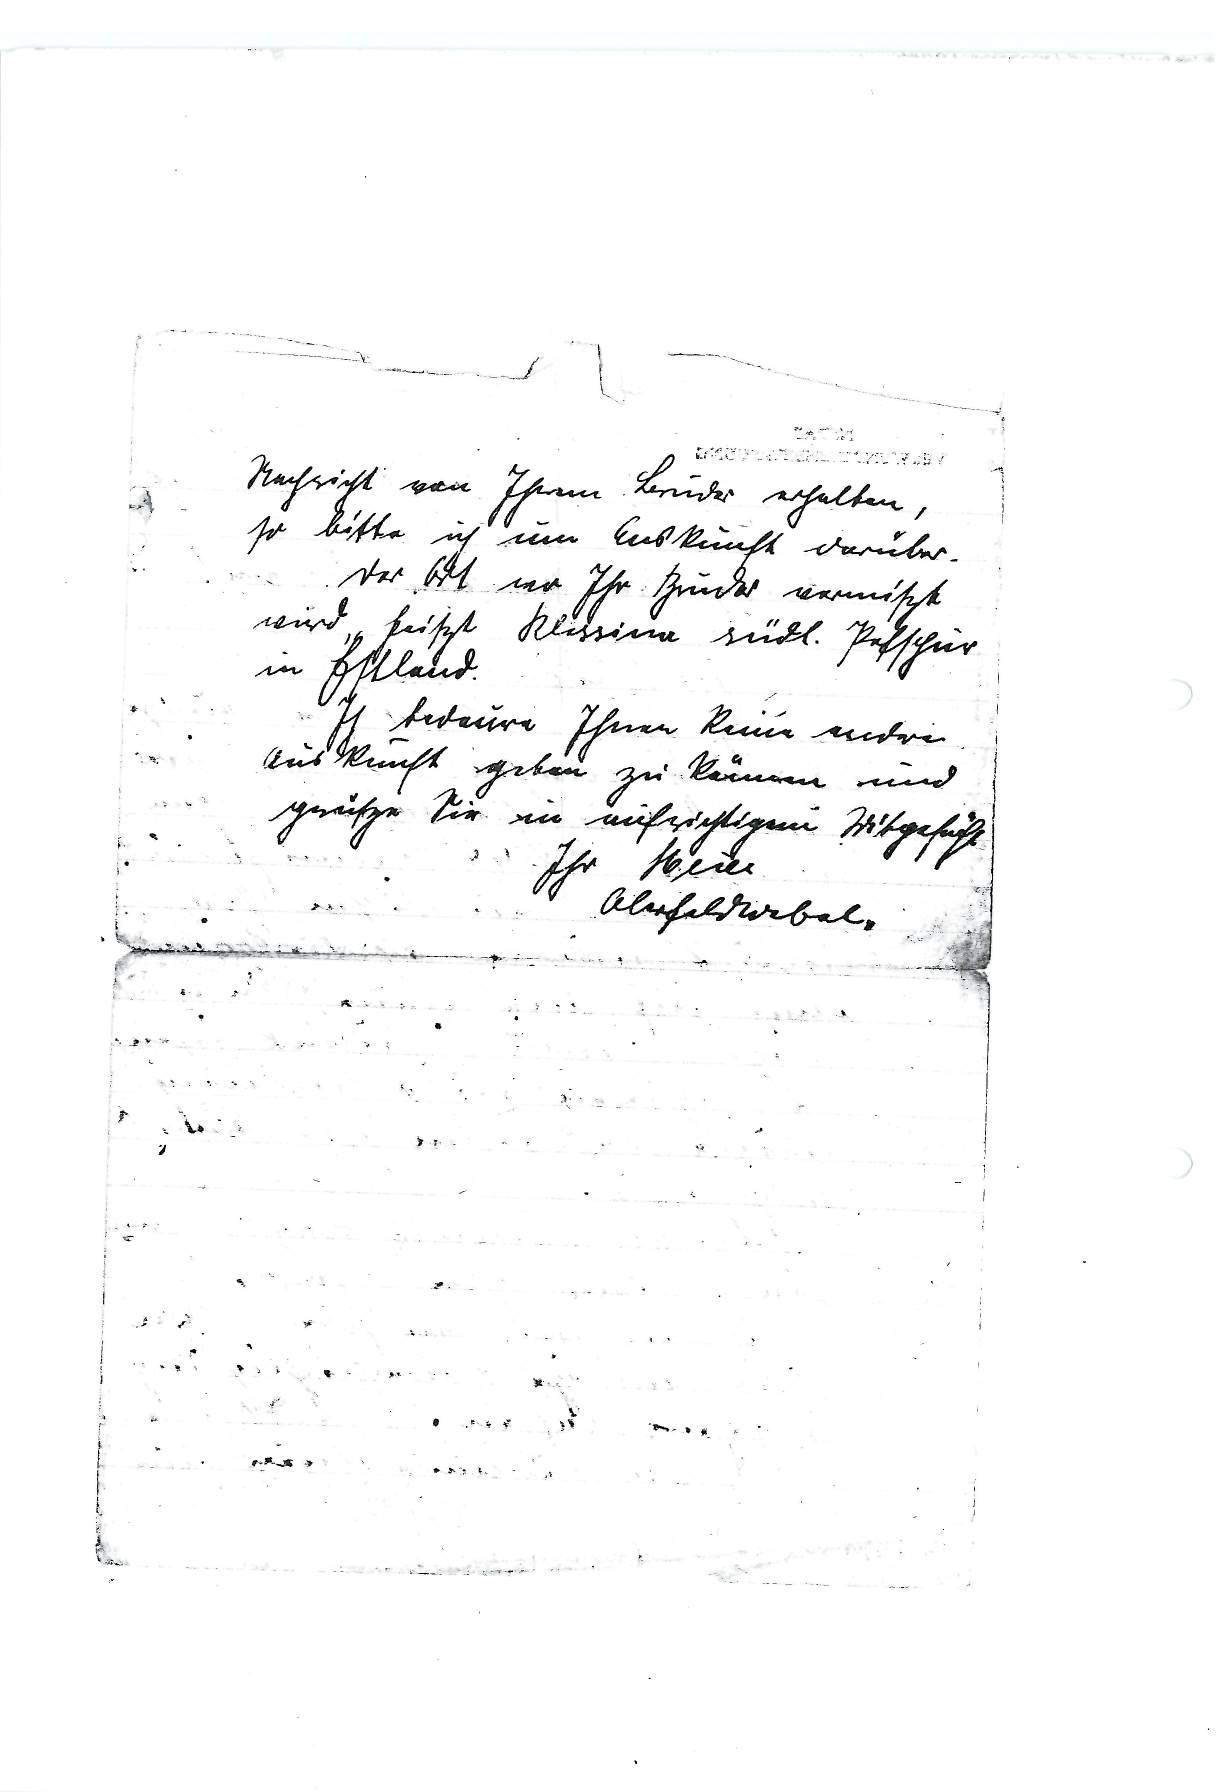 Nachricht von Ihrem Bruder erhalten,
so bitte ich um Auskunft darüber.
Der Ort wo Ihr Bruder vermißt
wird, heißt Klissina südl. Petschur
in Estland.
Ich bedaure Ihnen keine andre
Auskunft geben zu können und
grüße Sie in aufrichtigem Mitgefühl
Ihr
Oberfeldwebel.